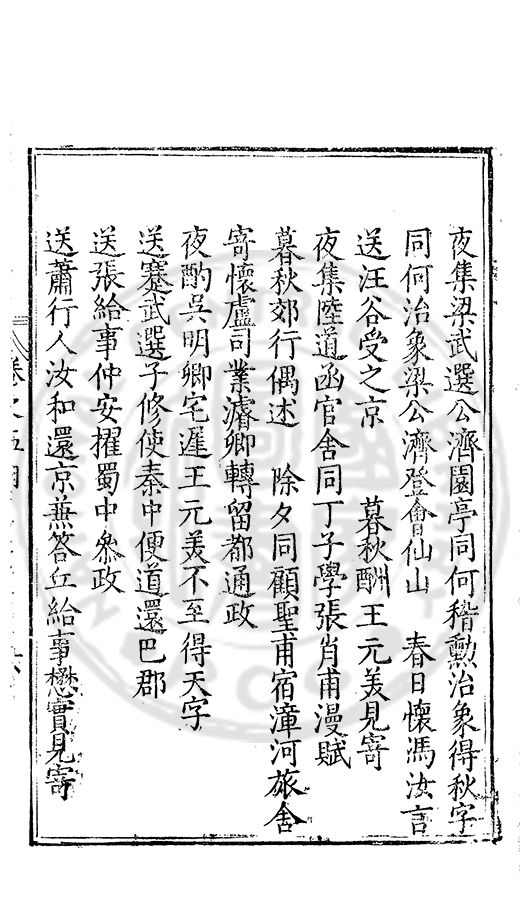 夜集梁武選公濟園亭同何稽勳治象得秋字
同何治象梁公濟登會仙山　春日懷馮汝言
送汪谷受之京　暮秋酬王元美見寄
夜集陸道函官舍同丁子學張肖甫漫賦
暮秋郊行偶述　除夕同顧聖甫宿漳河旅舍
寄懷盧司業濬卿轉留都通政
夜酌吳明卿宅遲王元美不至得天字
送蹇武選子修使秦中便道還巴郡
送張給事仲安擢蜀中叅政
送蕭行人汝和還京兼答丘給事懋實見寄
卷之五目